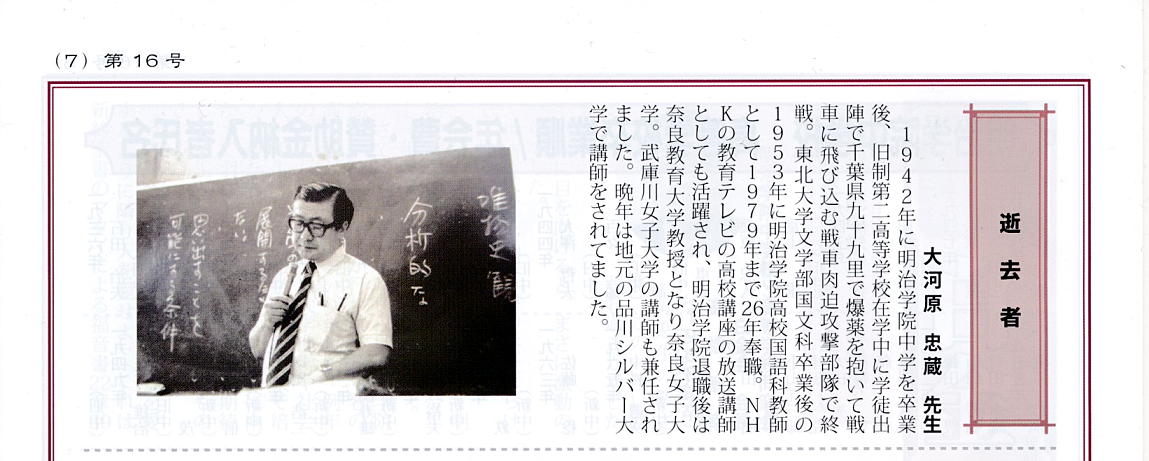 (7) 第16号
逝去者
大河原 忠蔵 先生
1942年に明治学院中学を卒業
後、旧制第二高等学校在学中に学徒出
陣で千葉県九十九里で爆薬を抱いて戦
車に飛び込む戦車肉迫攻撃部隊で終
戦。東北大学文学部国文科卒業後の
1953年に明治学院高校国語科教師
として1979年まで26年奉職。NH
Kの教育テレビの高校講座の放送講師
としても活躍され、明治学院退職後は
奈良教育大学教授となり奈良女子大
学。武庫川女子大学の講師も兼任され
ました。晩年は地元の品川シルバー大
学で講師をされてました。
唯物史観
分析的な
展開する
思い出すことを
可能にする条件